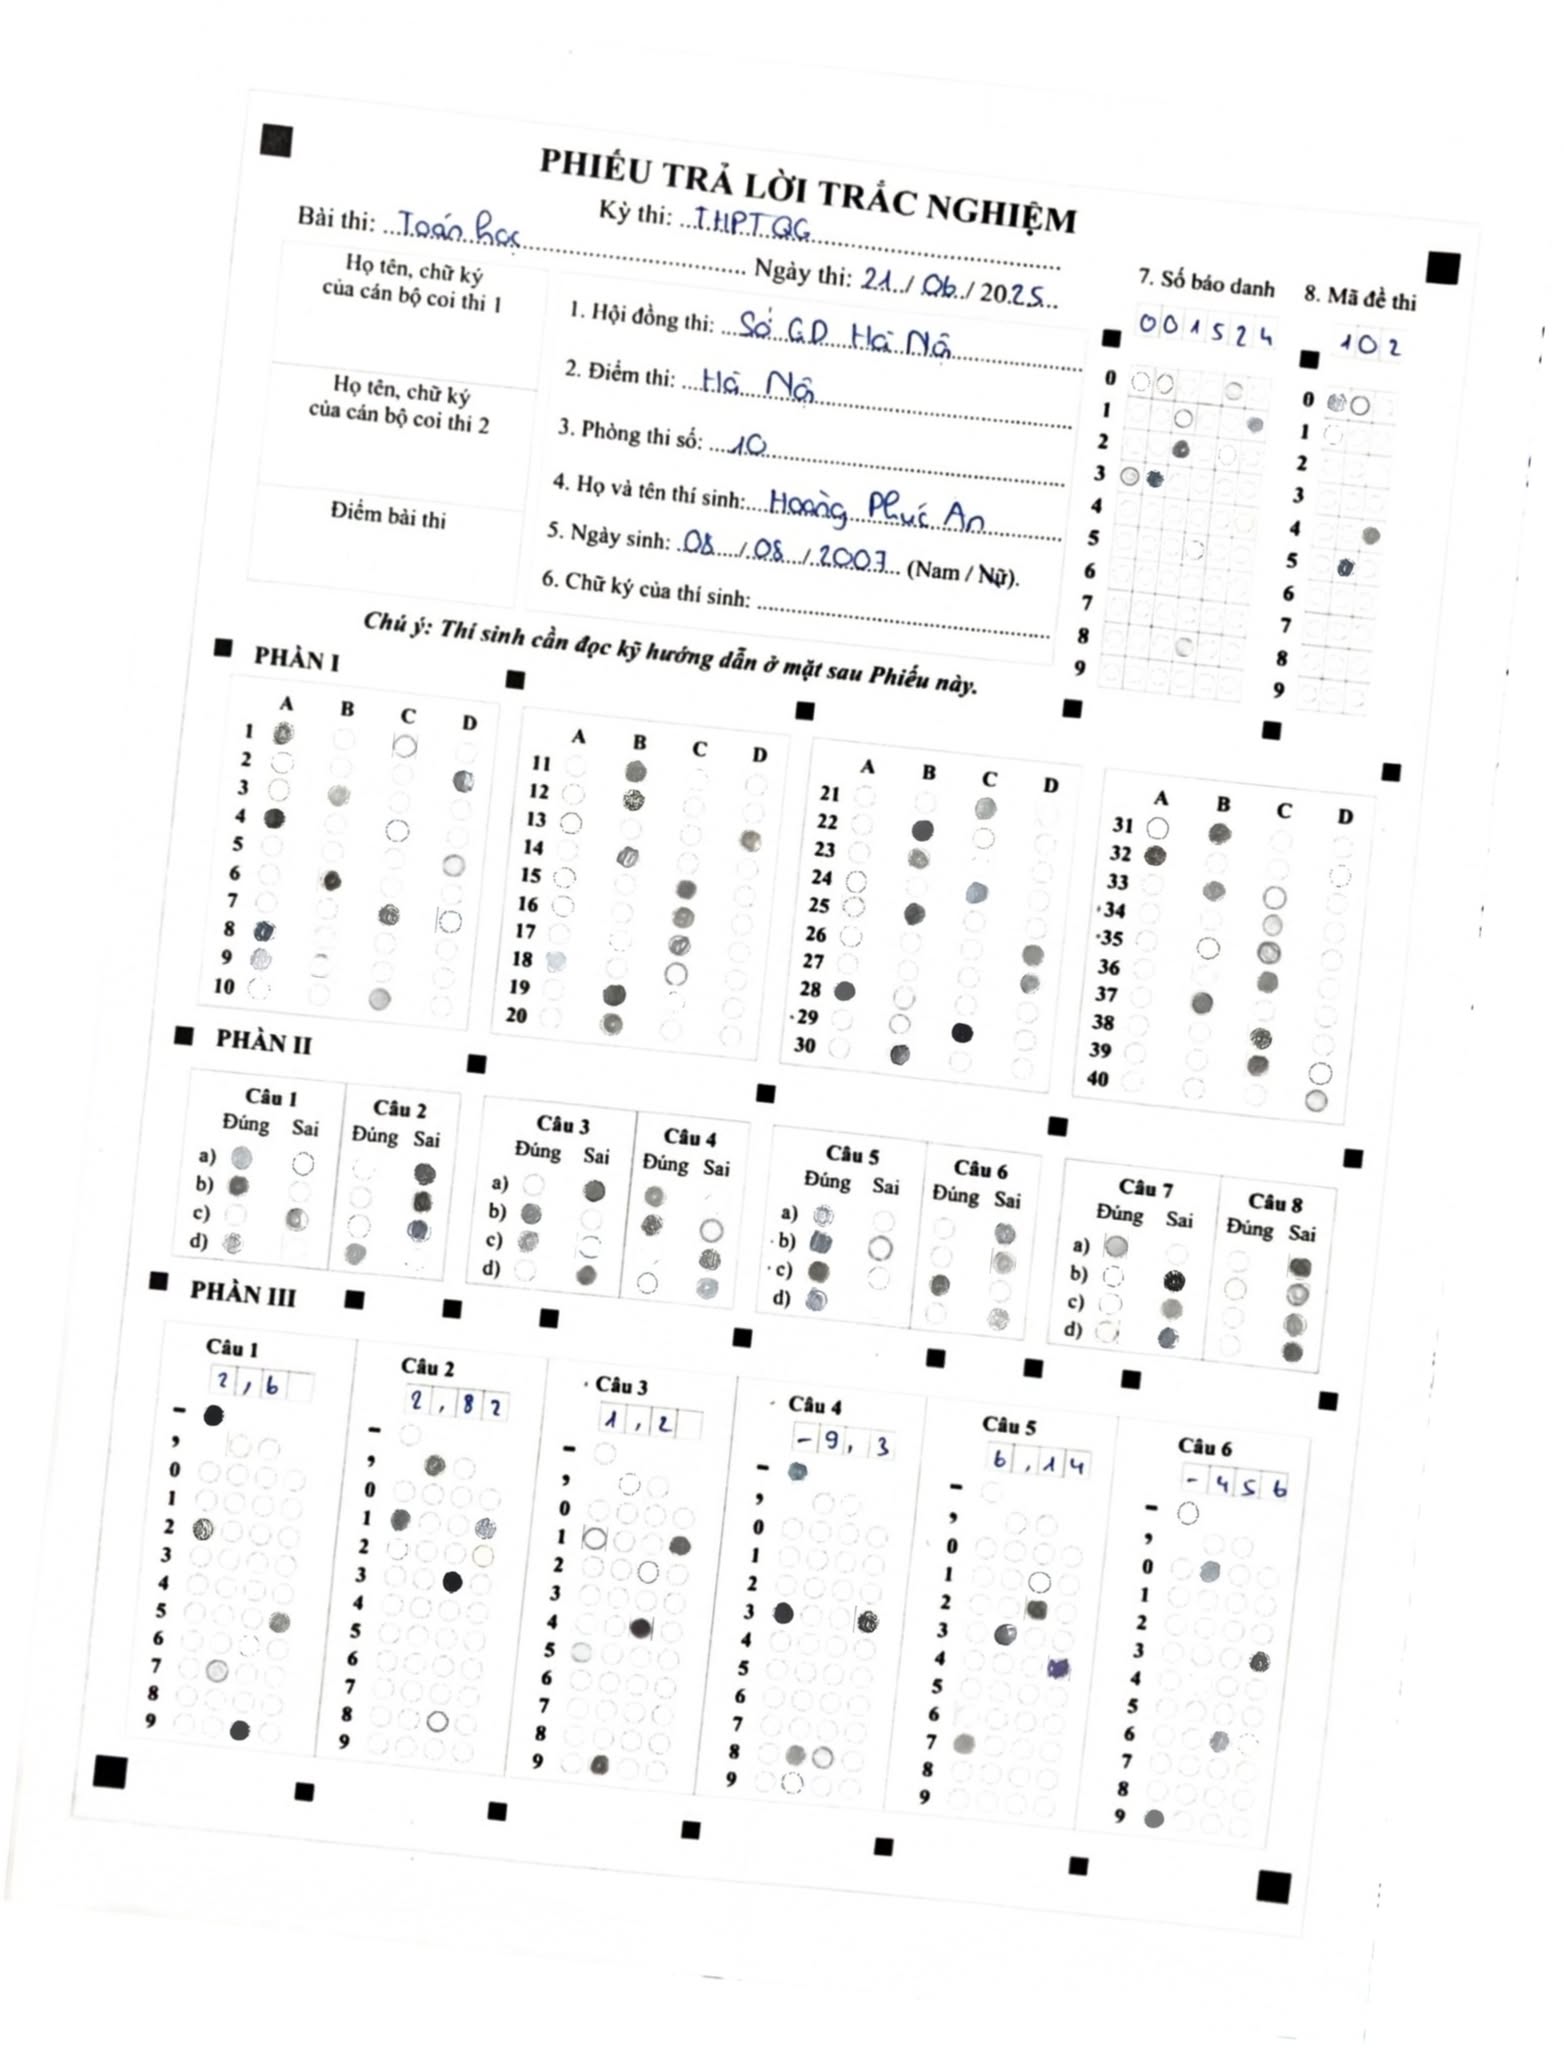 PHIẾU TRẢ LỜI TRẮC NGHIỆM
Kỳ thi: ...THPT QG...
Bài thi: ...Toán học... Ngày thi: 21../ 06../ 20.25...
Họ tên, chữ ký
của cán bộ coi thi 1
Họ tên, chữ ký
của cán bộ coi thi 2
Điểm bài thi
1. Hội đồng thi: ...Sở GD Hà Nội...
2. Điểm thi: ...Hà Nội...
3. Phòng thi số: ...10...
4. Họ và tên thí sinh:...Hoàng Phúc An...
5. Ngày sinh: 08.../.08.../.2007... (Nam / Nữ).
6. Chữ ký của thí sinh: ...
7. Số báo danh
0 0 1 5 2 4
0
1
2
3
4
5
6
7
8
9
8. Mã đề thi
1 0 2
0
1
2
3
4
5
6
7
8
9
Chú ý: Thí sinh cần đọc kỹ hướng dẫn ở mặt sau Phiếu này.
PHẦN I
A B C D
1
2
3
4
5
6
7
8
9
10
A B C D
11
12
13
14
15
16
17
18
19
20
A B C D
21
22
23
24
25
26
27
28
29
30
A B C D
31
32
33
34
35
36
37
38
39
40
PHẦN II
Câu 1 Câu 2
Đúng Sai Đúng Sai
a)
b)
c)
d)
Câu 3 Câu 4
Đúng Sai Đúng Sai
a)
b)
c)
d)
Câu 5 Câu 6
Đúng Sai Đúng Sai
a)
b)
c)
d)
Câu 7 Câu 8
Đúng Sai Đúng Sai
a)
b)
c)
d)
PHẦN III
Câu 1
2 , 6
-
,
0
1
2
3
4
5
6
7
8
9
Câu 2
2 , 8 2
-
,
0
1
2
3
4
5
6
7
8
9
Câu 3
1 , 2
-
,
0
1
2
3
4
5
6
7
8
9
Câu 4
- 9 , 3
-
,
0
1
2
3
4
5
6
7
8
9
Câu 5
6 , 1 4
-
,
0
1
2
3
4
5
6
7
8
9
Câu 6
- 4 5 6
-
,
0
1
2
3
4
5
6
7
8
9